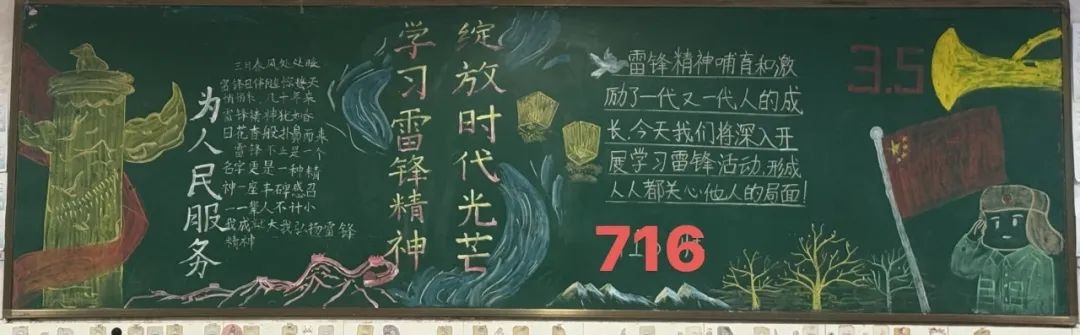 为人民服务
三月春风处处暖
雷锋日伴随惊蛰天
悄悄长，几十年来
雷锋精神犹如春
日花香般扑鼻而来
雷锋不止是一个
名字更是一种精
神一座丰碑感召
一一辈人不计小
我成就大我弘扬雷锋
精神
学习雷锋精神
绽放时代光芒
雷锋精神哺育和激
励了一代又一代人的成
长，今天我们将深入开
展学习雷锋活动，形成
人人都关心他人的局面！
716
3.5